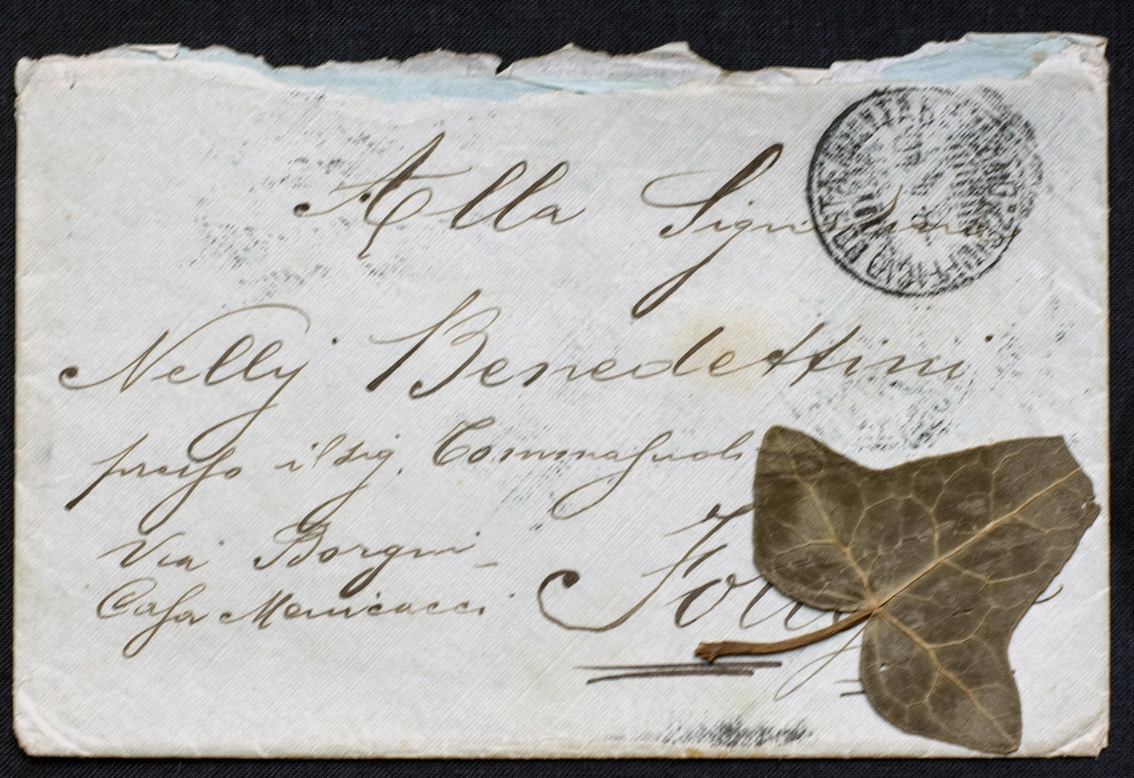 Alla Signorina
Nelly Benedettini
presso il Sig. Commagnoli
Via Borgni
Casa Menicacci